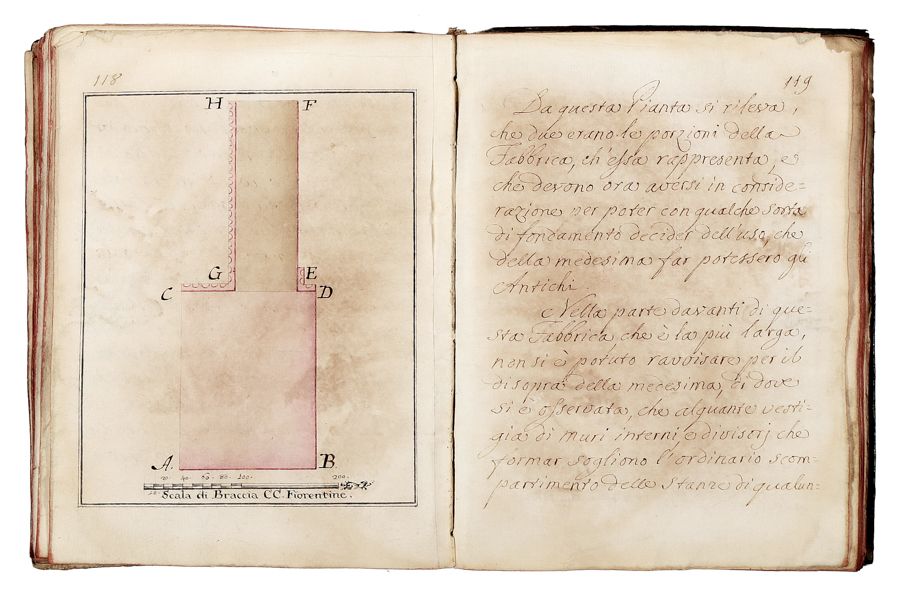 118
H F
G E
C D
A. B
20. 40. 60. 80. 100. 200.
Scala di Braccia CC. Fiorentine.
119
Da questa Pianta si rileva,
che due erano le porzioni della
Fabbrica, ch'essa rappresenta, e
che devono ora aversi in conside=
razione per poter con qualche sorta
di fondamento decider dell'uso, che
della medesima far potessero gli
Antichi.
Nella parte davanti di que=
sta Fabbrica, che è la più larga,
non si è potuto ravvisare per il
disopra della medesima, di dove
si è osservata, che alquante vesti=
gia di muri interni, e divisorj che
formar sogliono l'ordinario scom=
partimento delle stanze di qualun=